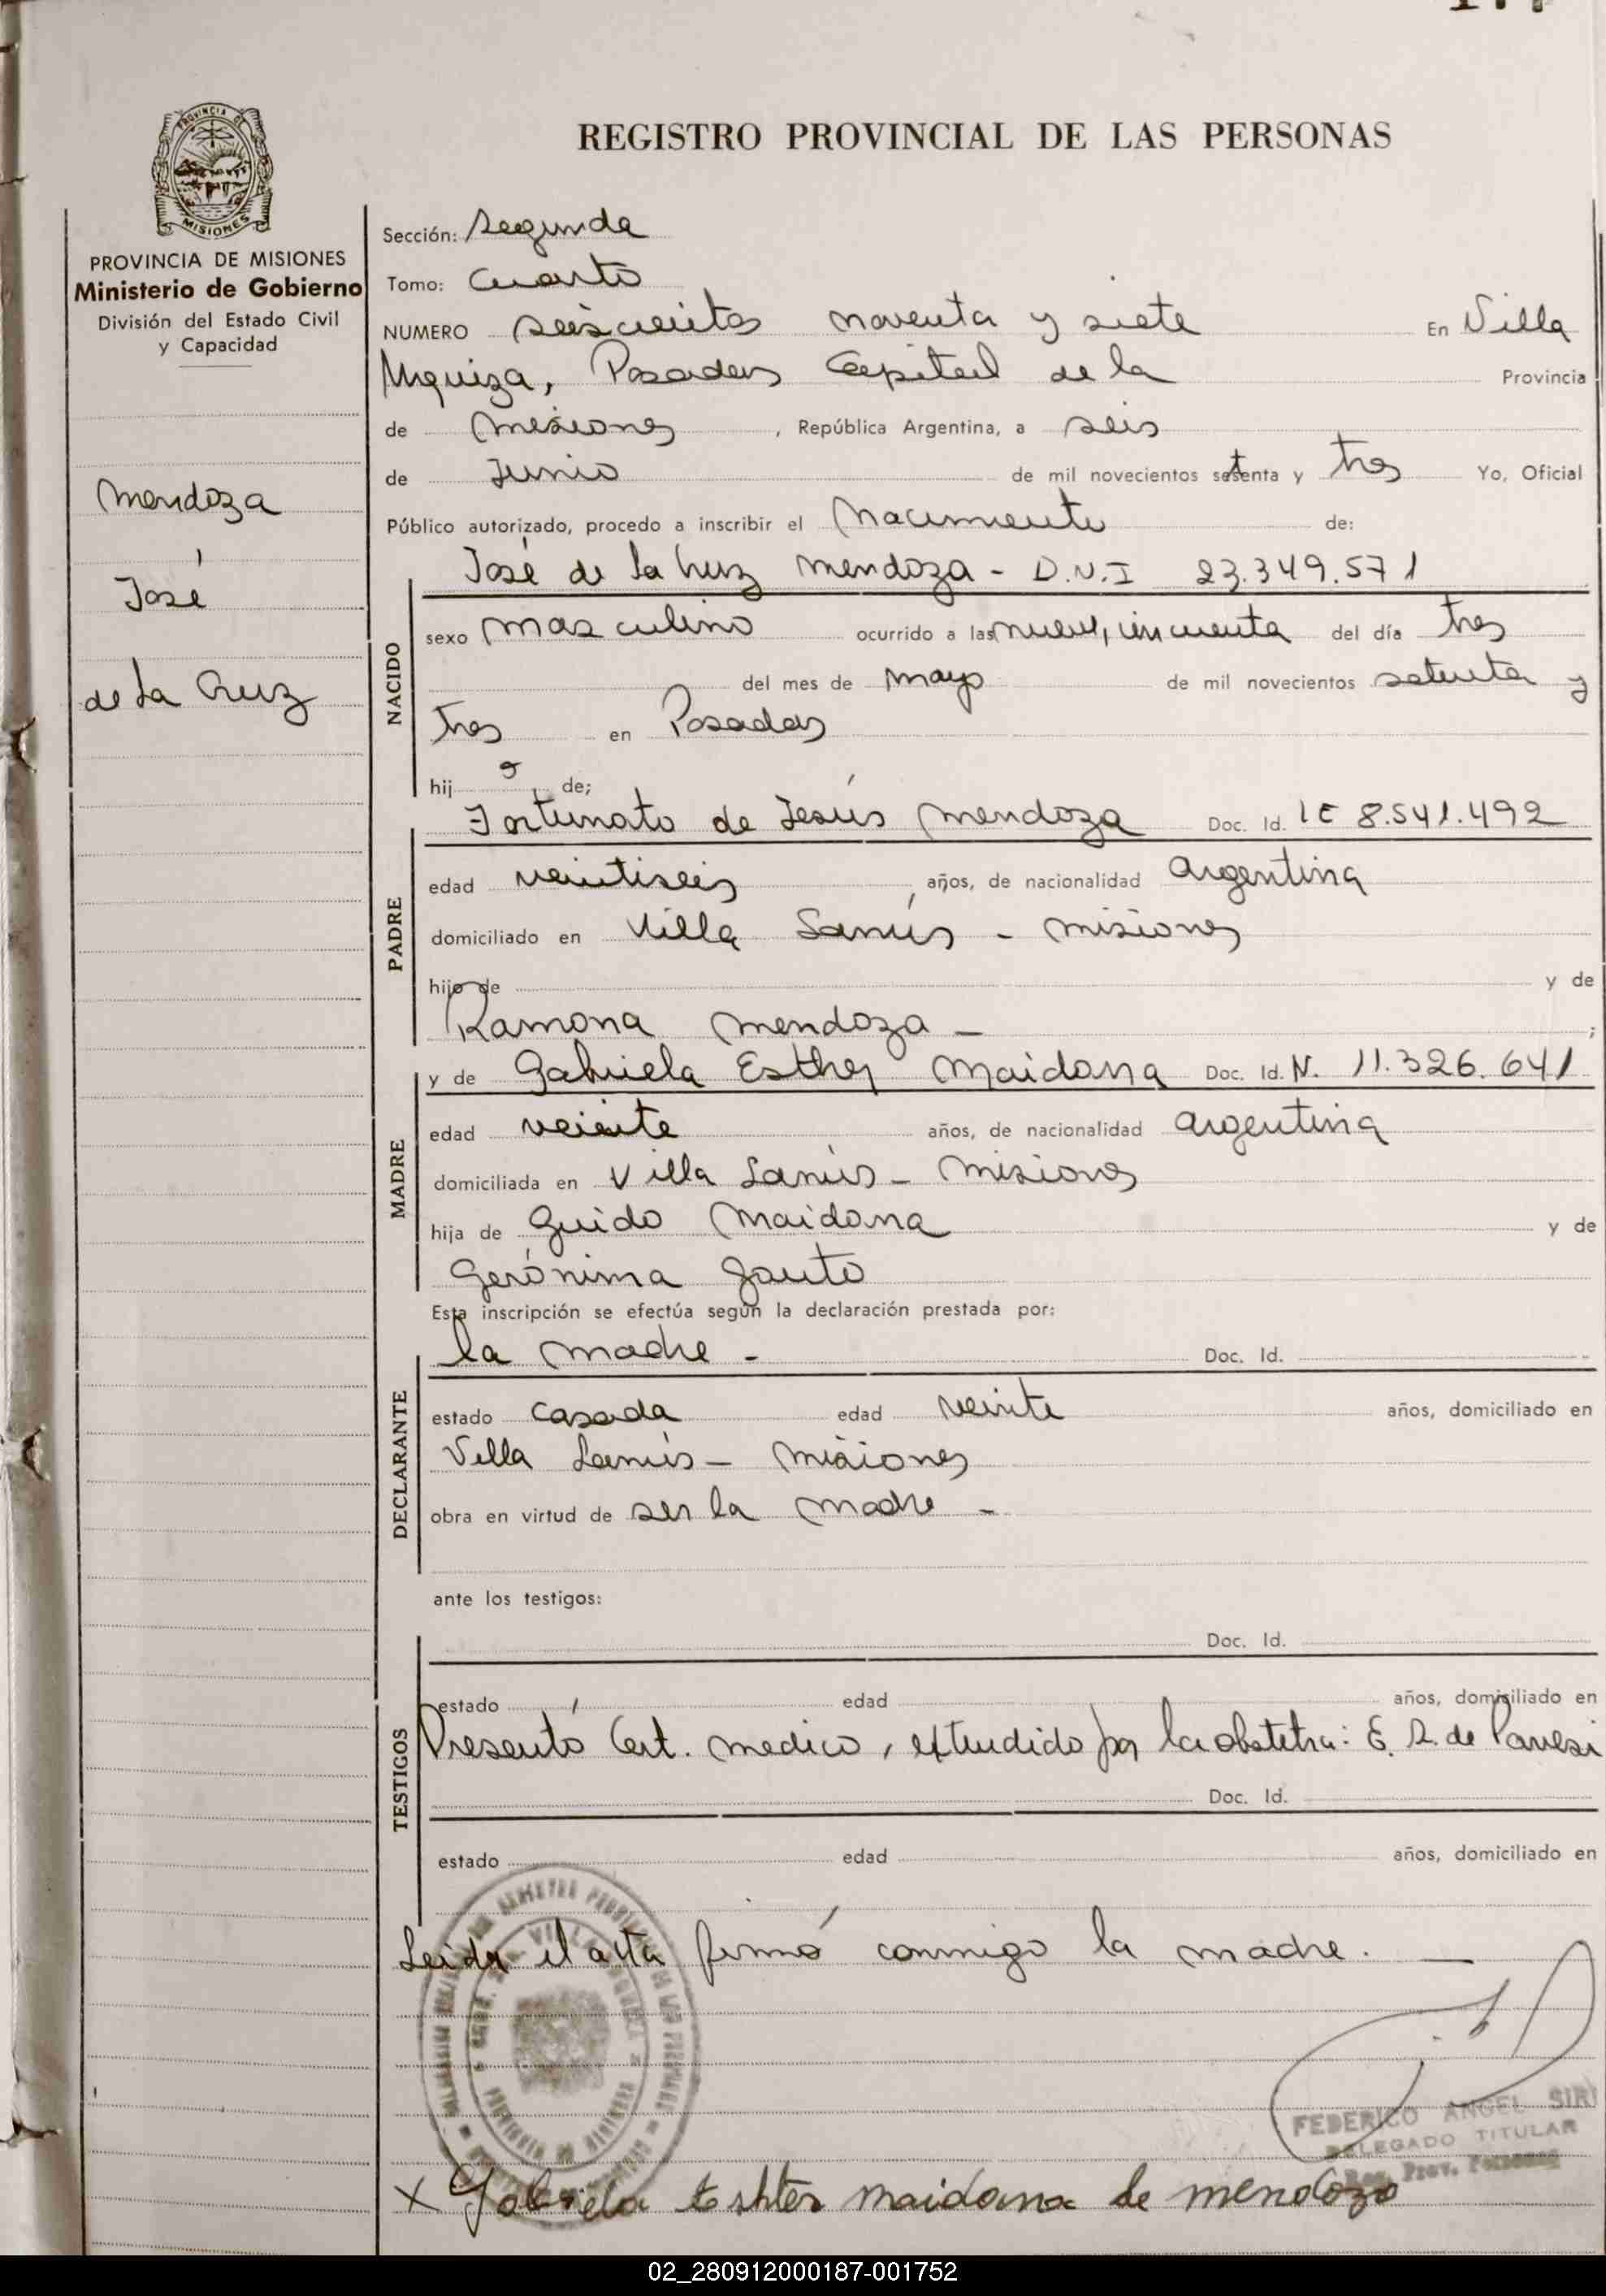 REGISTRO PROVINCIAL DE LAS PERSONAS
PROVINCIA DE
MISIONES
PROVINCIA DE MISIONES
Ministerio de Gobierno
División del Estado Civil
y Capacidad
Mendoza
José
de la Cruz
Sección: Segunda
Tomo: Cuarto
NUMERO seiscientos noventa y siete En Villa
Urquiza, Posadas Capital de la Provincia
de Misiones, República Argentina, a seis
de Junio de mil novecientos setenta y tres Yo, Oficial
Público autorizado, procedo a inscribir el Nacimiento de:
NACIDO
José de la Cruz Mendoza - D.N.I 23.349.571
sexo masculino ocurrido a las nueve, cincuenta del día tres
del mes de mayo de mil novecientos setenta y
tres en Posadas
hijo de;
PADRE
Fortunato de Jesús Mendoza Doc. Id. LE 8.541.492
edad veintiseis años, de nacionalidad argentina
domiciliado en Villa Lanús - Misiones
hijo de y de
Ramona Mendoza - ;
MADRE
y de Gabriela Esther Maidana Doc. Id. N. 11.326.641
edad veinte años, de nacionalidad argentina
domiciliada en Villa Lanús - Misiones
hija de Guido Maidana y de
Gerónima Gauto
Esta inscripción se efectúa según la declaración prestada por:
DECLARANTE
la madre - Doc. Id.
estado casada edad veinte años, domiciliado en
Villa Lanús - Misiones
obra en virtud de ser la madre -
ante los testigos:
TESTIGOS
Doc. Id.
estado edad años, domiciliado en
Presentó Cert. medico, extendido por la obstetra: E. R. de Panesi
Doc. Id.
estado edad años, domiciliado en
Leida el acta firmó conmigo la madre.
FEDERICO ANGEL SIRI
DELEGADO TITULAR
Reg. Prov. Personas
x Gabriela Eshter maidana de mendoza
02_280912000187-001752